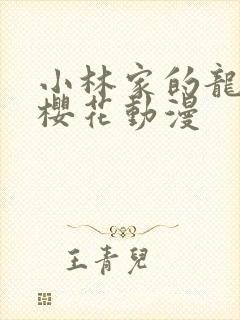 小林家的龍
櫻花動漫
王青兒